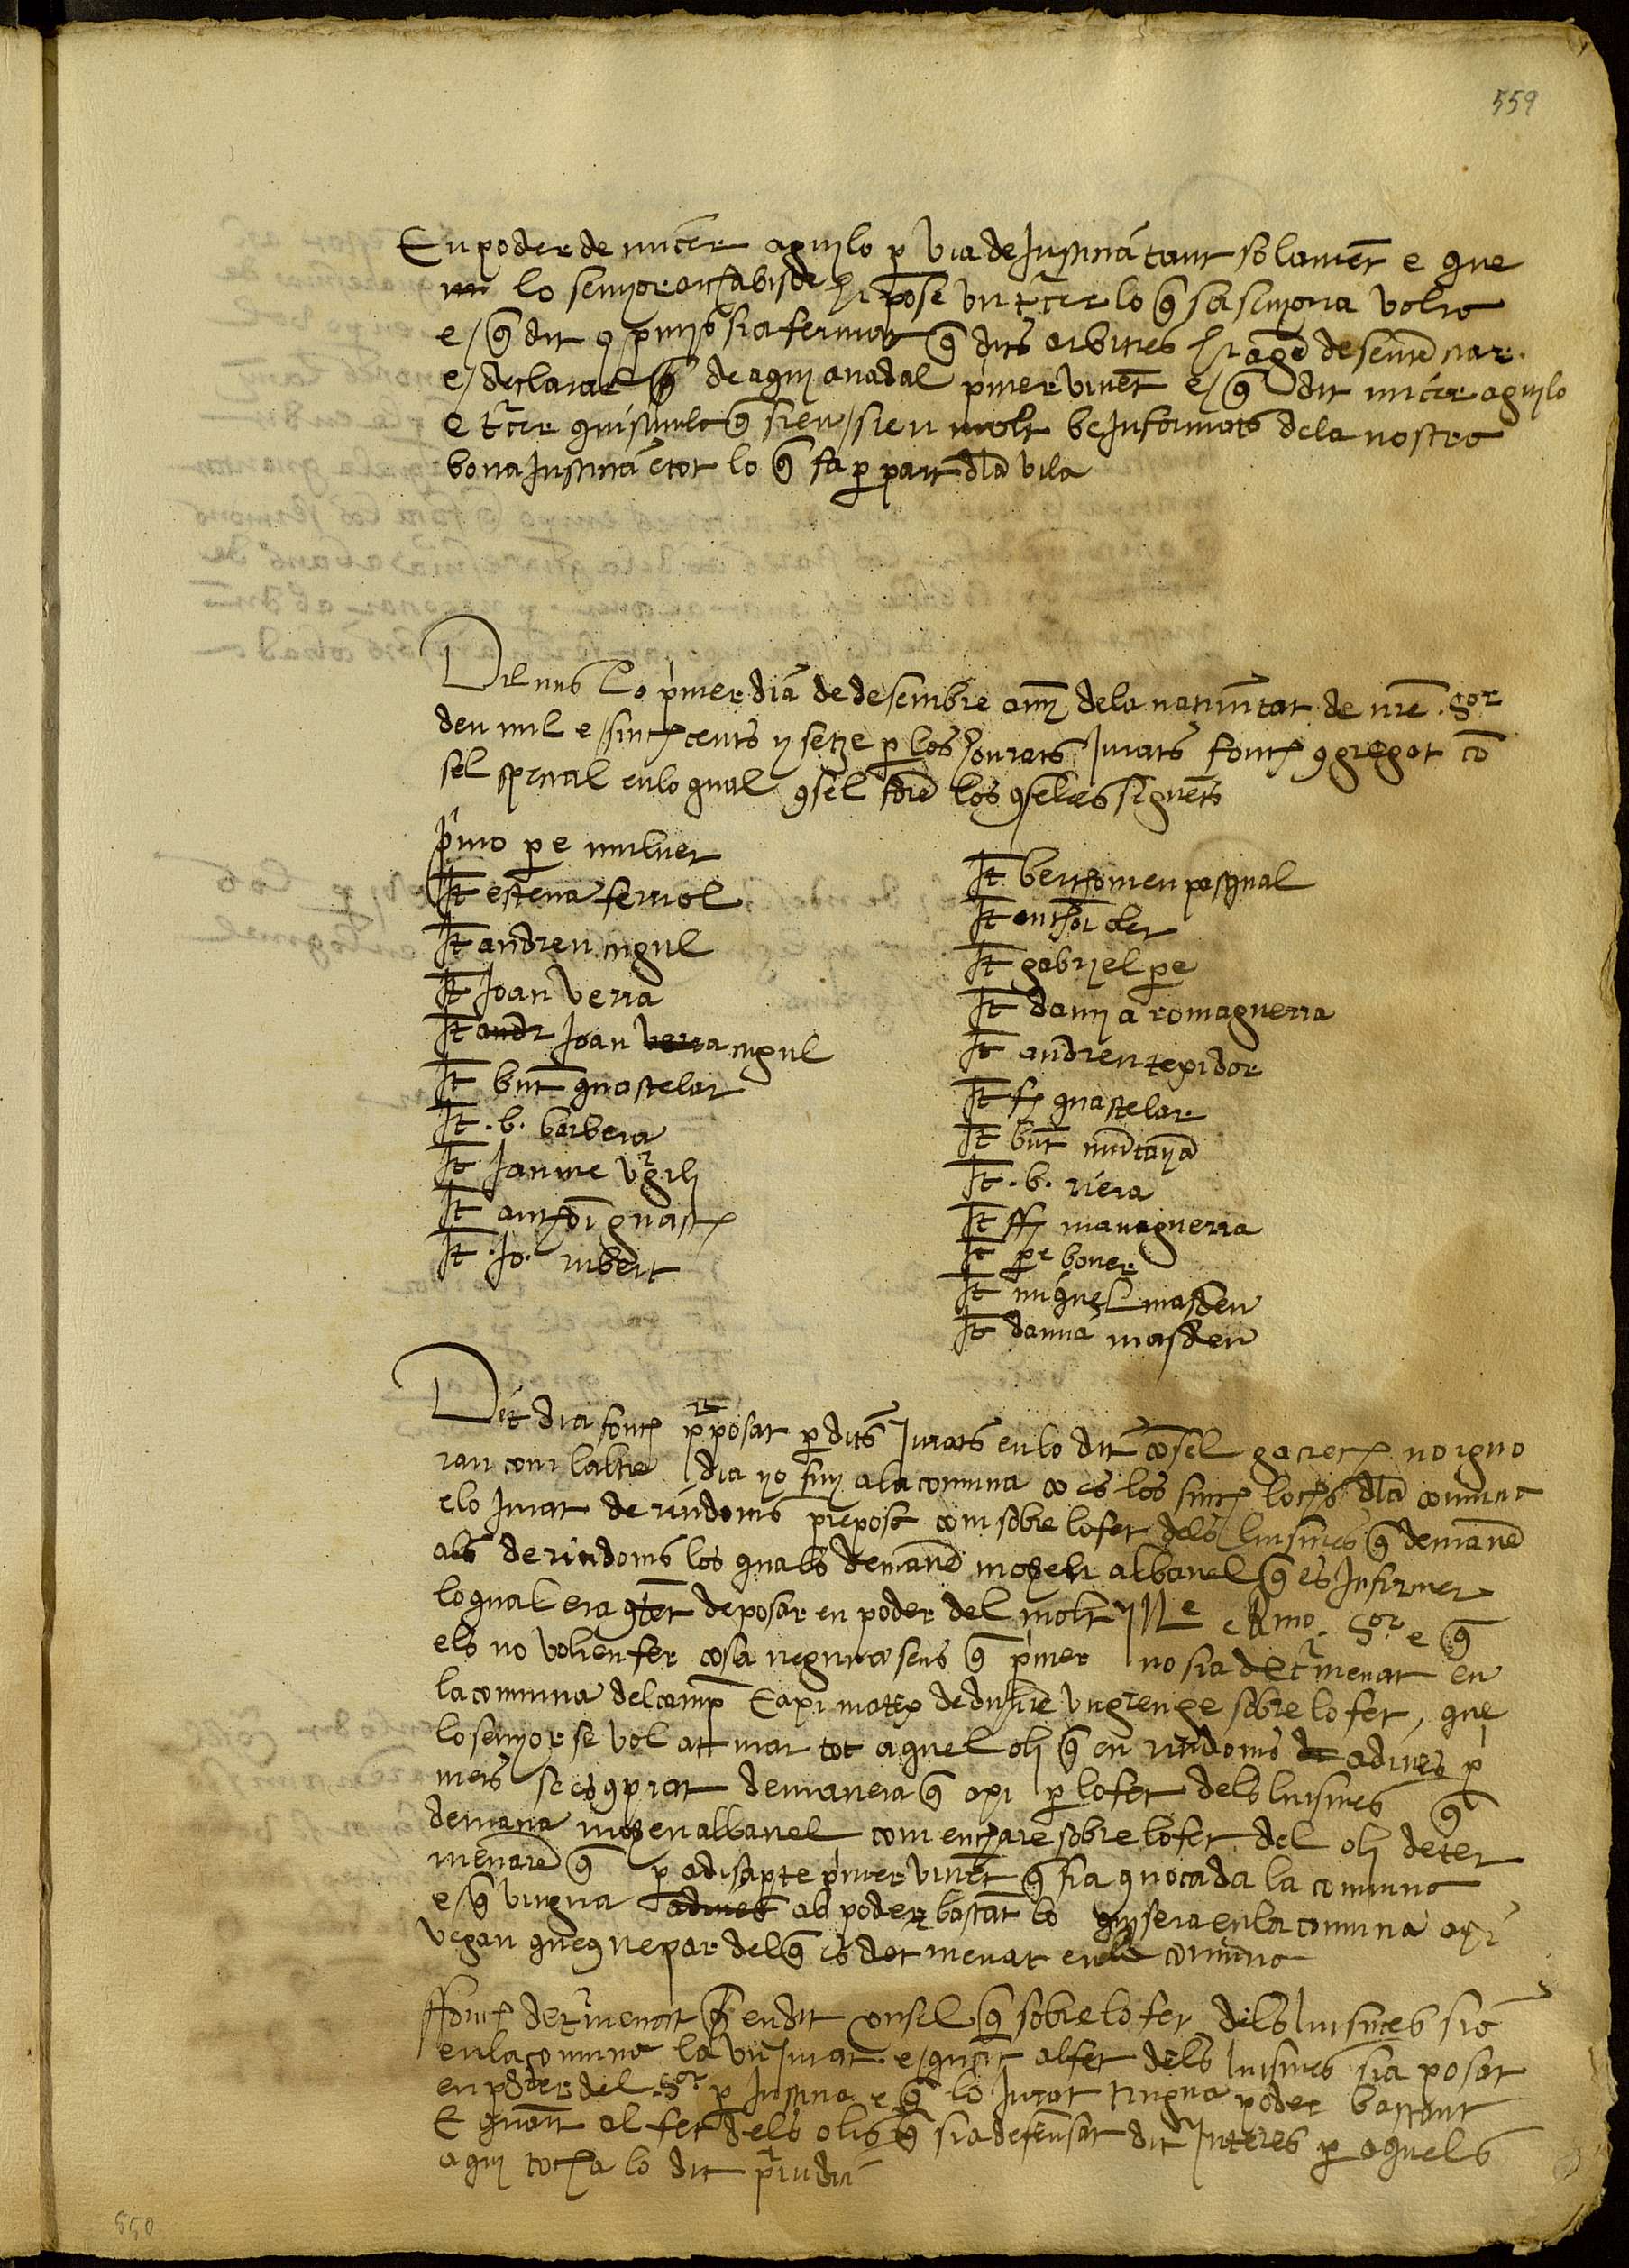 559
En poder de micer aguylo p via de Justicia tant solament e que
lo senyor archabisbe hi pose un tcer lo q sa senyoria volra
e / q dit 9pmys sia fermat q dits arbitres hi agen de sentenciar
e / declarar q de aquy a nadal pmer vinent e / q dit micer aguylo
e tcer q sien / sien molt be Informats de la nostra
bona Justicia e tot lo q fa p part dla vila
Diluns lo pmer dia de desembre any de la nativitat de nre Sor
deu mil e sinch cents y setze p los honrats Jurats fonch 9gregat co
sel special en lo qual 9sel foren los 9selers seguents
pmo pere muluet
It esteva ferriol
It andreu cugul
It Joan verra
It andr Joan verra cugul
It bnt guastelar
It .b. barbera
It Jaume vrgili
It anthoni guasch
It .Jo. rubert
It berthomeu pasqual
It anthoni oler
It gabriel pe
It damia romaguerra
It andreu texidor
It fr guastelar
It bnt muntanya
It .b. riera
It ffr managuerra
It pe boner
It miquel masdeu
It damia masdeu
Dit dia fonch pposat p dits Jurats en lo dit consel ga crech no igno
ran com laltre dia yo fuy a la comuna co es los sinch lochs dla comuna
e lo Jurat de riudoms preposa com sobre lo fet dels luismes q demane
als de riudoms los quals demane mosen albanel q es Infirmer
lo qual era 9tent de posar en poder del molt Ille e Rmo Sor e q
els no volien fer cosa neguna sens q pmer no sia detrmenat en
la comuna del camp E axi matex de dihuere un grenge sobre lo fet, que
lo senyor se vol atturar tot aquel oli q en riudoms de adines p
mers se es 9prat de manera q axi p lo fet dels luismes q
demana mosen albanel com encare sobre lo fet del oli deter
menare q p a disapte pmer vinent q sia 9vocada la comuna
e / q vingua adines ab poder bastant lo quy sera en la comuna axi
vegan que 9nepar del q es detmenat en la comuna
ffonch detrmenat q en dit consel q sobre lo fet dels luismes sie
en la comuna la un Jurat e / quant al fet dels luismes sia posat
en poder del Sor p Justicia e q lo Jurat tingua poder bastant
E quant al fet dels olis q sia defensat dit Interes p aquels
a quy tocha lo dit priudici
550